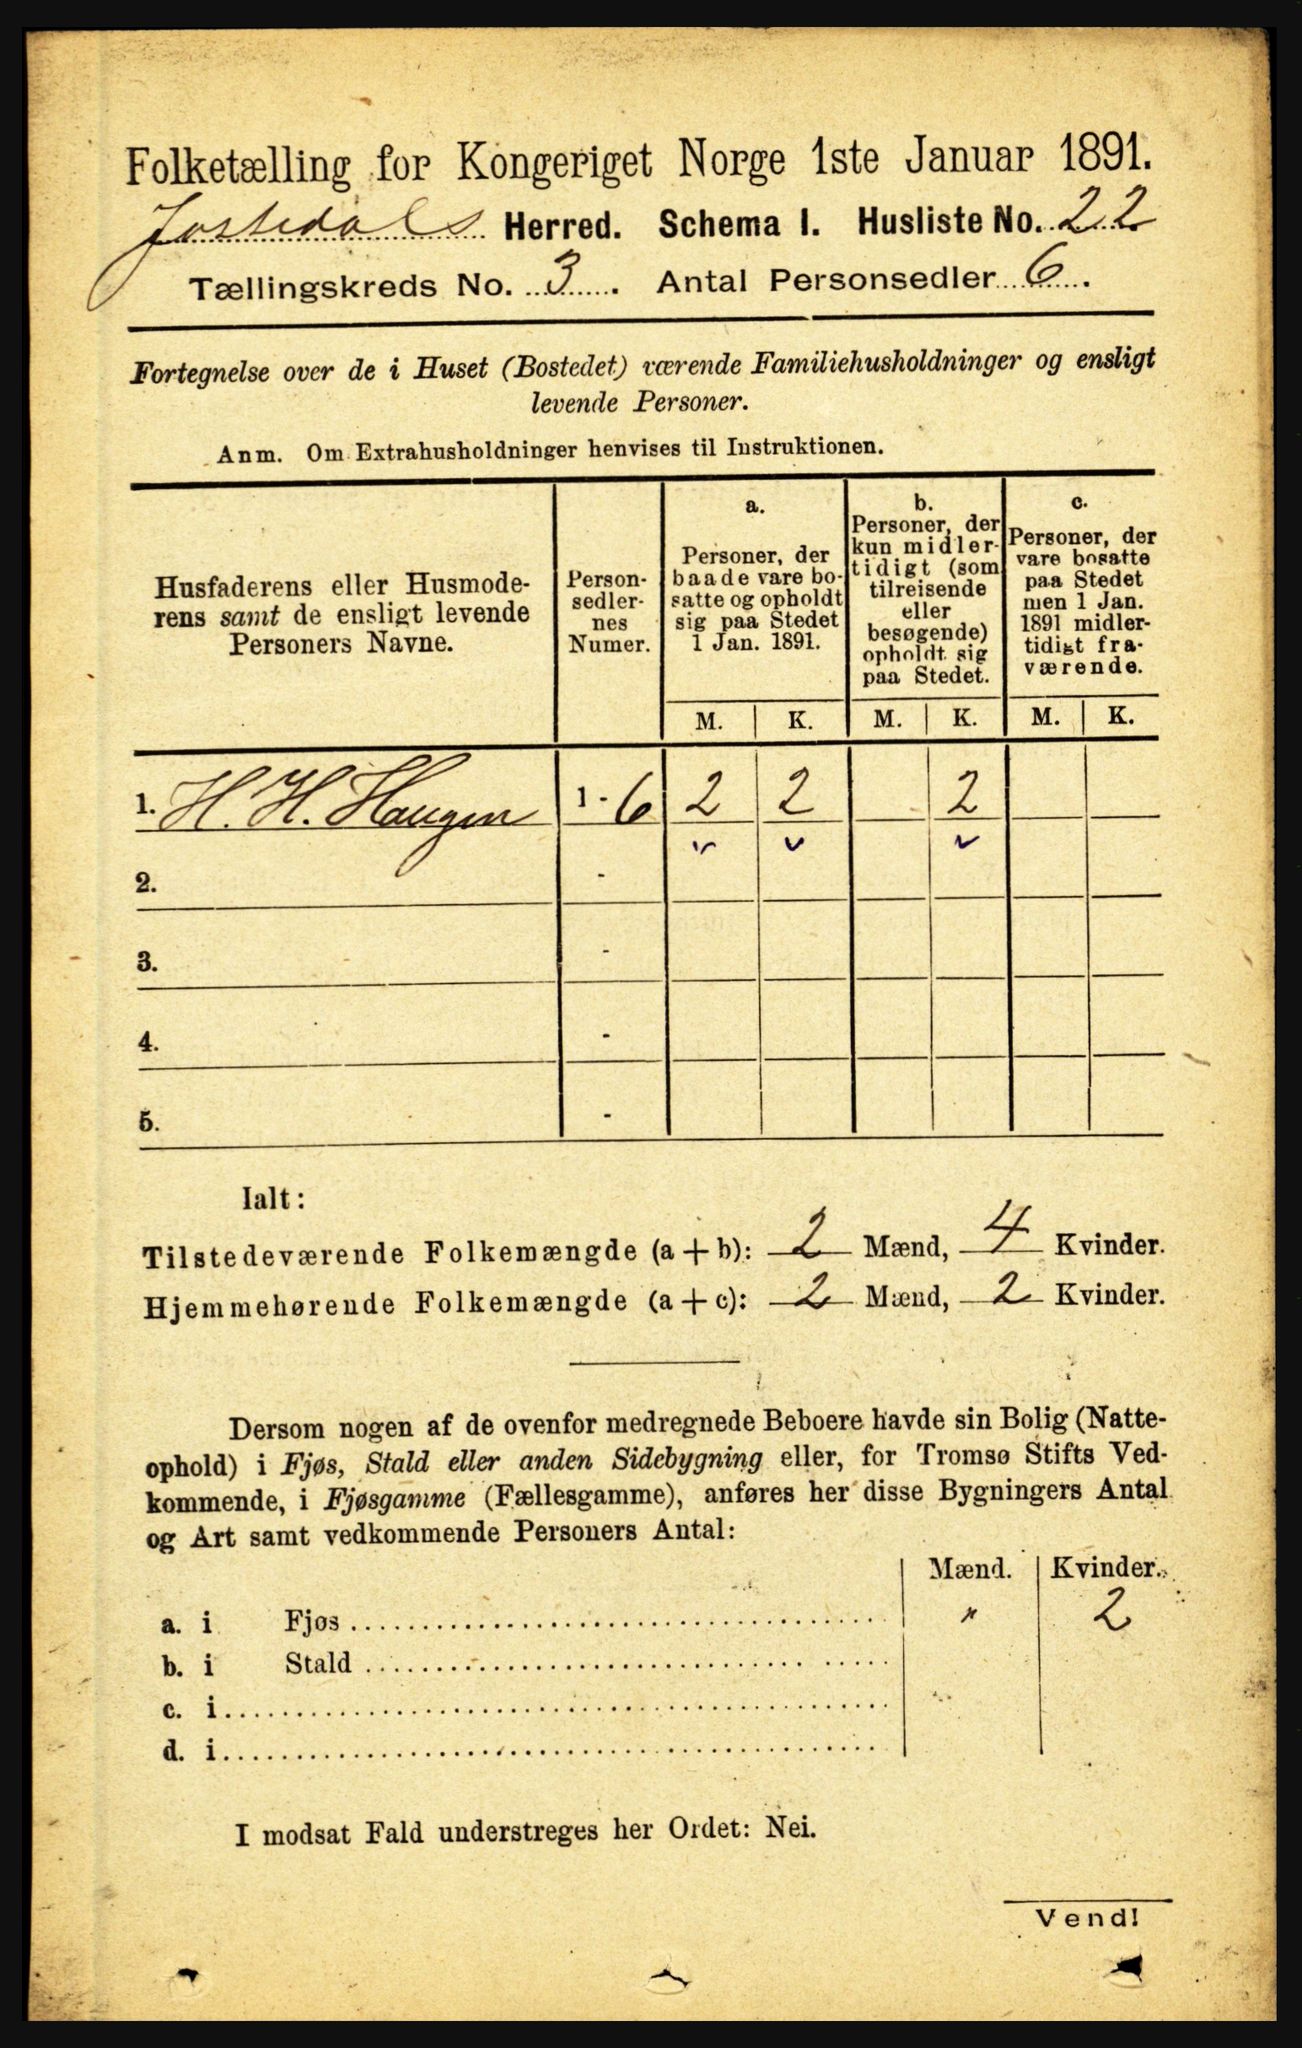 Folketælling for Kongeriget Norge 1ste Januar 1891.
Jostedals Herred. Schema I. Husliste No. 22
Tællingskreds No. 3. Antal Personsedler 6.
Fortegnelse over de i Huset (Bostedet) værende Familiehusholdninger og ensligt
levende Personer.
Anm. Om Extrahusholdninger henvises til Instruktionen.
Husfaderens eller Husmode-
rens samt de ensligt levende
Personers Navne.
Person-
sedler-
nes
Numer.
a.
Personer, der
baade vare bo-
satte og opholdt
sig paa Stedet
1 Jan. 1891.
b.
Personer, der
kun midler-
tidigt (som
tilreisende
eller
besøgende)
opholdt sig
paa Stedet.
c.
Personer, der
vare bosatte
paa Stedet
men 1 Jan.
1891 midler-
tidigt fra-
værende.
M. K. M. K. M. K.
1. H. H. Haugen 1 - 6 2 2 2
2. -
3. -
4. -
5. -
Ialt:
Tilstedeværende Folkemængde (a + b): 2 Mænd, 4 Kvinder.
Hjemmehørende Folkemængde (a + c): 2 Mænd, 2 Kvinder.
Dersom nogen af de ovenfor medregnede Beboere havde sin Bolig (Natte-
ophold) i Fjøs, Stald eller anden Sidebygning eller, for Tromsø Stifts Ved-
kommende, i Fjøsgamme (Fællesgamme), anføres her disse Bygningers Antal
og Art samt vedkommende Personers Antal:
Mænd. Kvinder.
a. i Fjøs " 2
b. i Stald
c. i
d. i
I modsat Fald understreges her Ordet: Nei.
Vend!